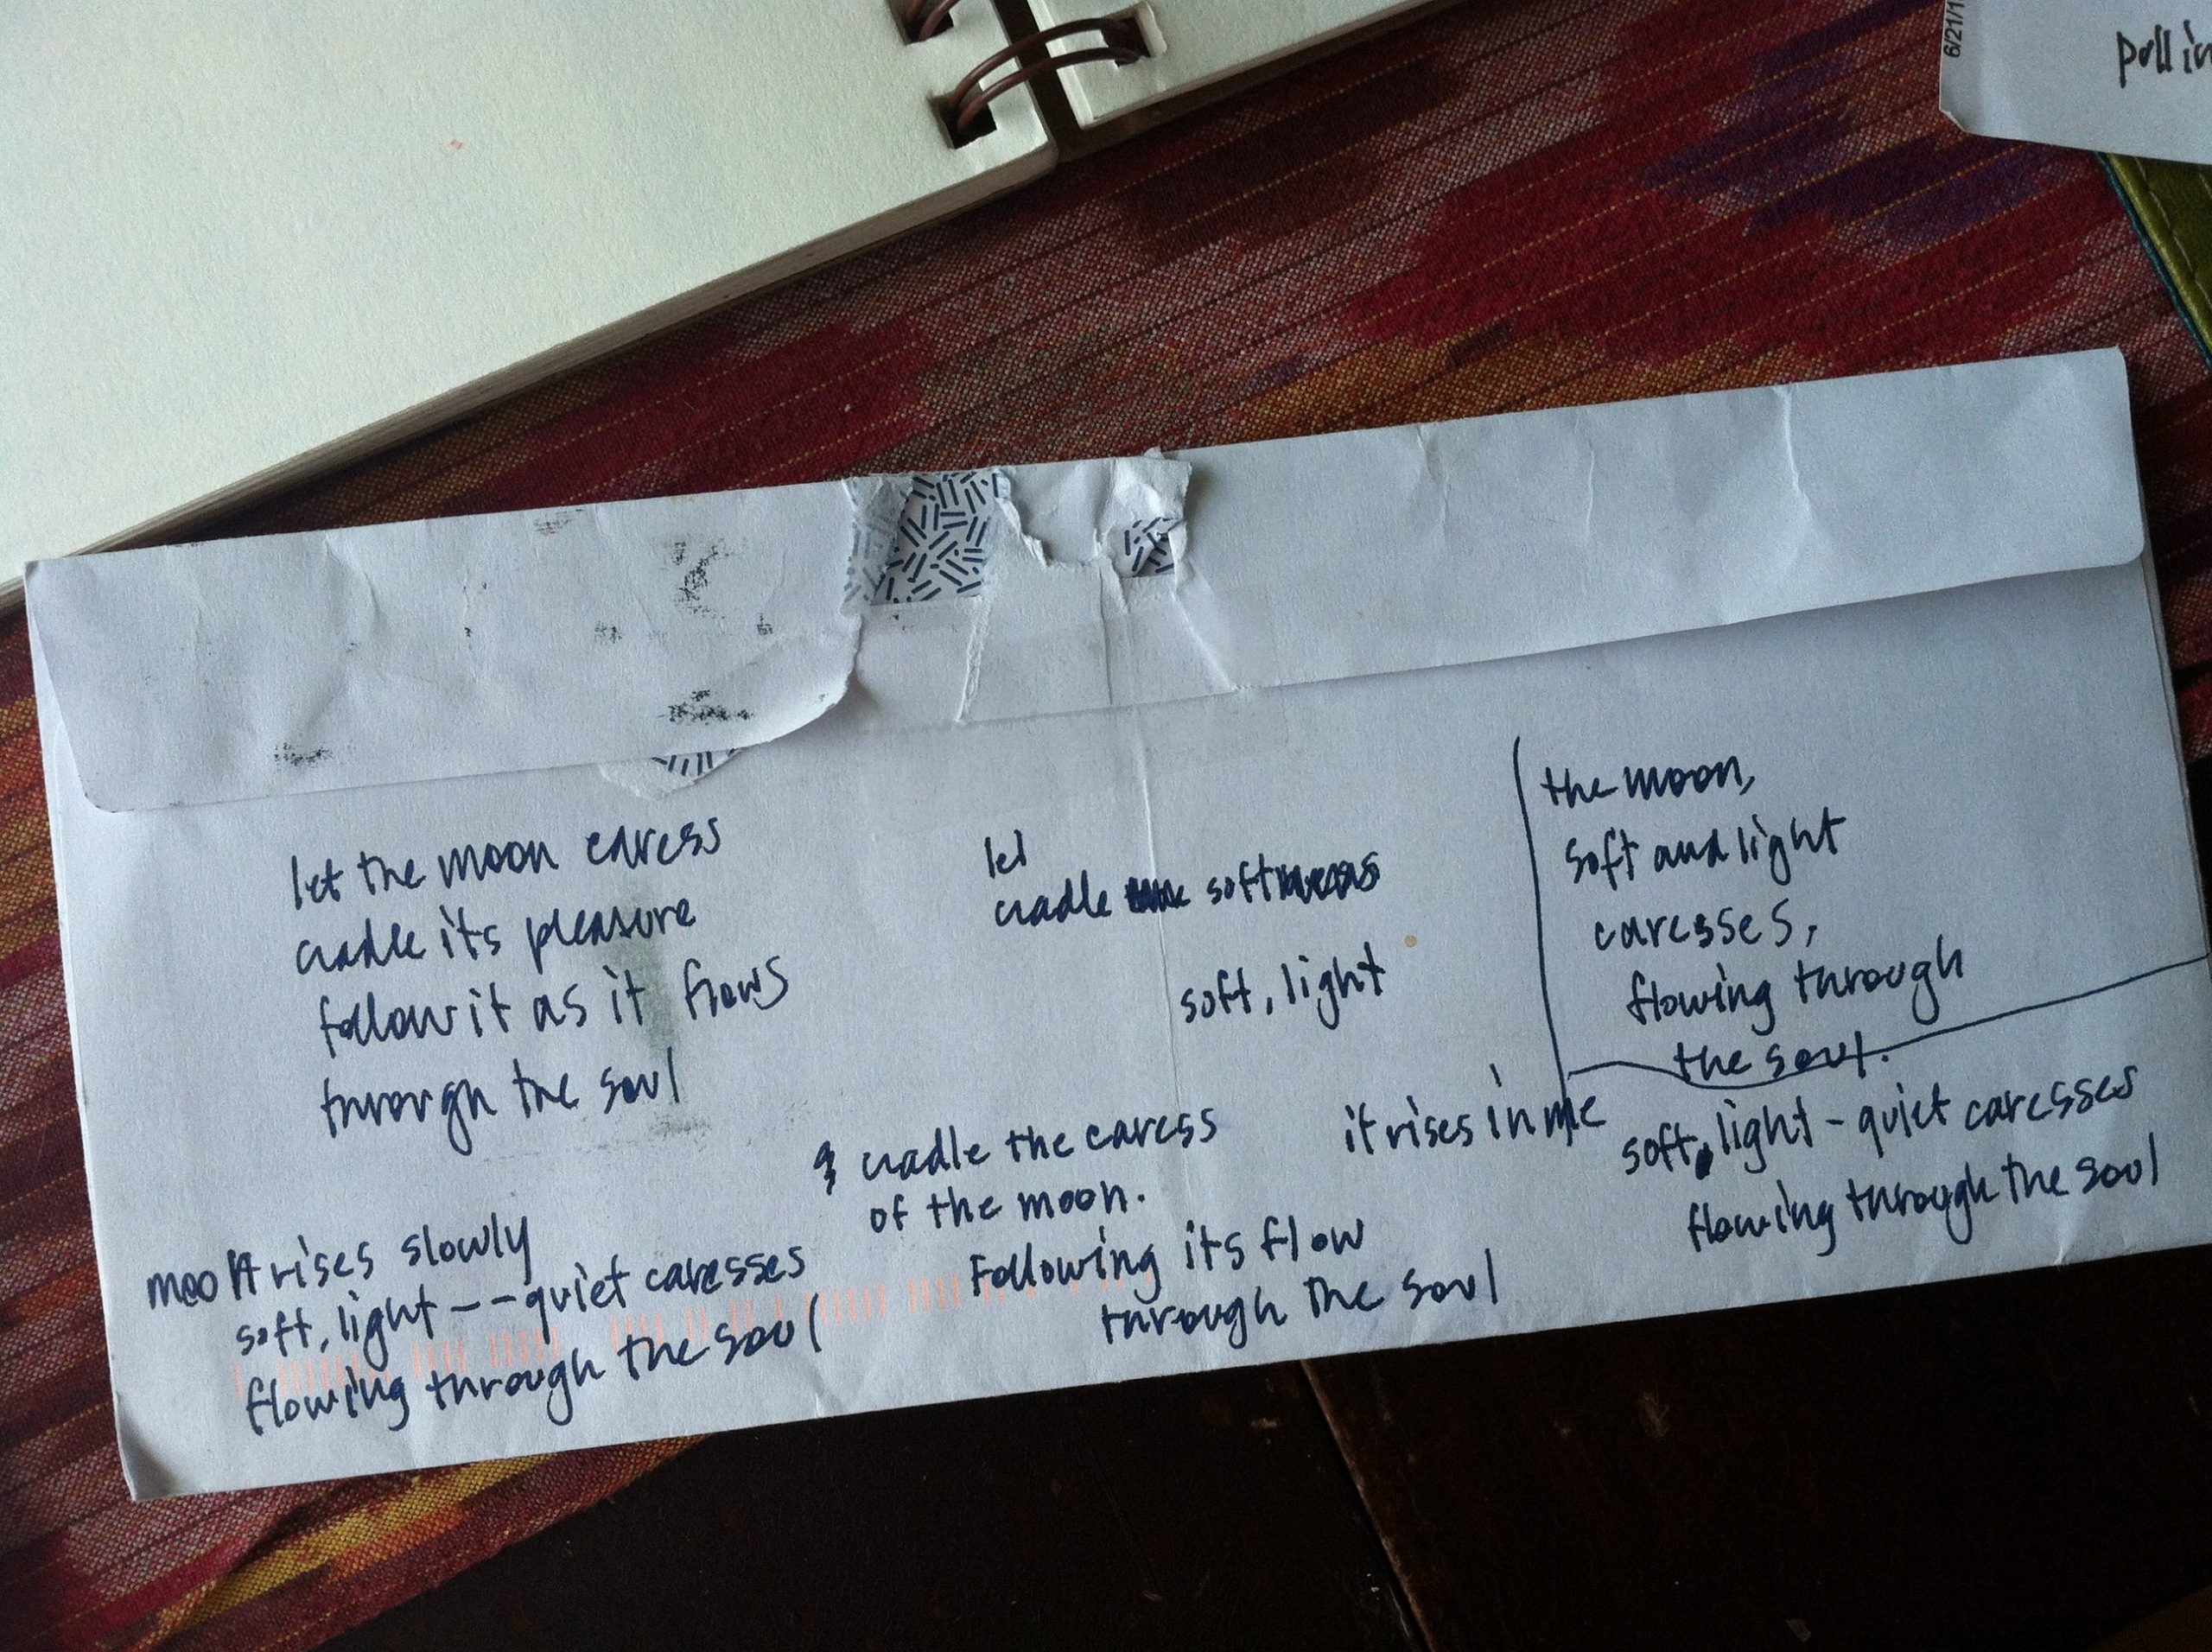 6/21/1
let the moon caress
cradle its pleasure
follow it as it flows
through the soul
let
cradle soft
soft, light
the moon,
soft and light
caresses,
flowing through
the soul.
& cradle the caress
of the moon.
Following its flow
through the soul
it rises in me
soft, light - quiet caresses
flowing through the soul
rises slowly
soft, light -- quiet caresses
flowing through the soul